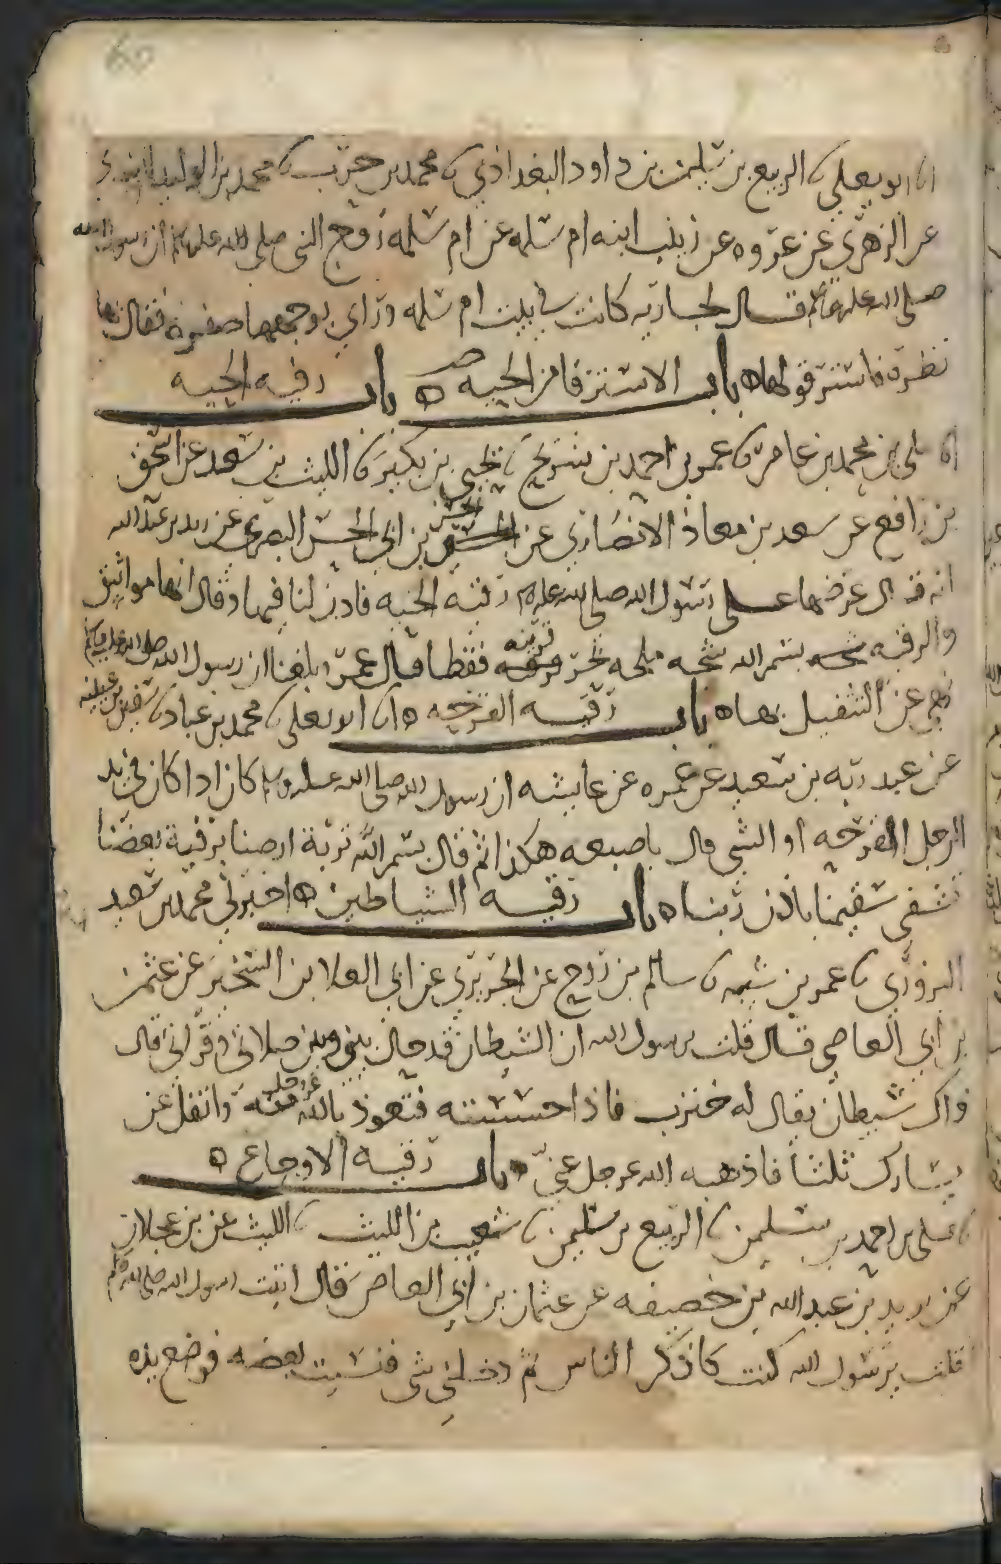 60
ابو يعلى الربيع بن سليمن بن داود البغدادي محمد بن حرب محمد بن الوليد الزبيدي
عن الزهري عن عروه عن زينب ابنه ام سلمه عن ام سلمه زوج النبي صلى الله عليه ان رسول الله
صلى الله عليه قال لجاريه كانت في بيت ام سلمه وراى بوجهها صفره فقال بها
نظره فاسترقوا لها باب الاسترقا من الحيه باب رقيه الحيه
على بن محمد بن عامر عمر بن احمد بن شريح يحيى بن بكير الليث بن سعد عن اسحق
بن رافع عن سعد بن معاذ الانصاري عن الحسن بن ابي الحسن البصري عن زيد بن عبد الله
انه قال عرضها على رسول الله صلى الله عليه رقيه الحيه فاذن لنا فيها وقال انها مواثيق
والرقيه بسم الله شجه ملحه بحر قرنيه فقطا قال عمر وبلغنا ان رسول الله صلى الله عليه
نهى عن التفيل بها باب رقيه القرحه ابو يعلى محمد بن عباد سفين بن عيينه
عن عبد ربه بن سعيد عن عمره عن عايشه ان رسول الله صلى الله عليه كان اذا كان في يد
الرجل القرحه او الشي قال باصبعه هكذا ثم قال بسم الله تربة ارضنا برقية بعضنا
تشفي سقيمنا باذن ربنا باب رقيه الشياطين اخبرني محمد بن سعيد
البزوري عمر بن شبه سالم بن نوح عن الجريري عن ابي العلا بن الشخير عن عثمن
بن ابي العاصي قال قلت يرسول الله ان الشيطان قد حال بيني وبين صلاتي وقراتي قال
ذاك شيطان يقال له خنزب فاذا احسسته فتعوذ بالله عز وجل منه واتفل عن
يسارك ثلثا فاذهبه الله عز وجل عني باب رقيه الاوجاع
على بن احمد بن سليمن الربيع بن سليمن شعيب بن الليث الليث عن بن عجلان
عن يزيد بن عبد الله بن خصيفه عن عثمان بن ابي العاص قال اتيت رسول الله صلى الله عليه
فقلت يرسول الله كنت كاذكر الناس ثم دخلني شي فنسيت بعضه فوضع يده